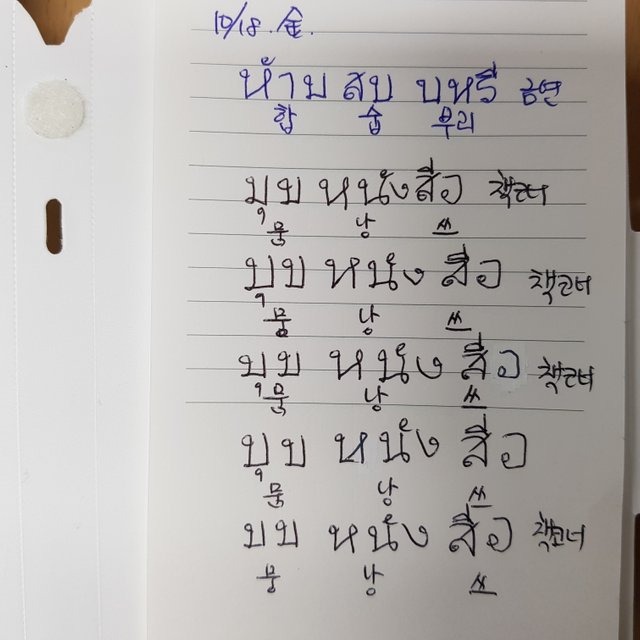 10/18.金.
ห้าม สบ บหรี่ 금연
합 숩 부리
มุม หนังสือ 책코너
뭄 낭 쓰
มุม หนัง สือ 책코너
뭄 낭 쓰
มุม หนัง สือ 책코너
뭄 낭 쓰
มุม หนัง สือ
뭄 낭 쓰
มม หนัง สือ 책코너
뭉 낭 쓰